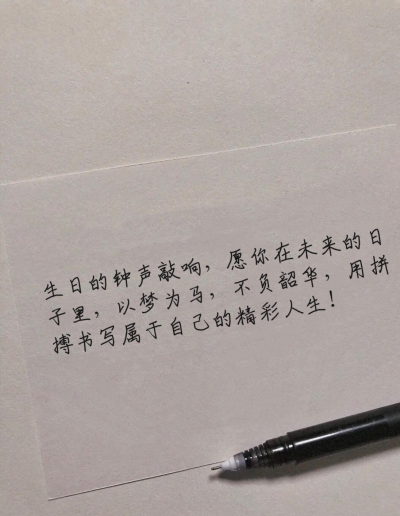 生日的钟声敲响，愿你在未来的日
子里，以梦为马，不负韶华，用拼
搏书写属于自己的精彩人生！